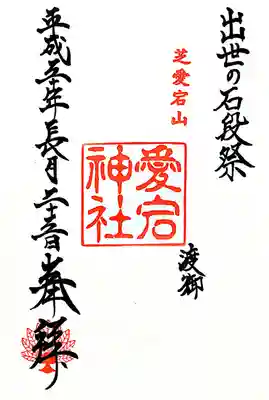 出世の石段祭
渡御
芝愛宕山
愛宕神社
平成三十年長月二十三日
奉拝